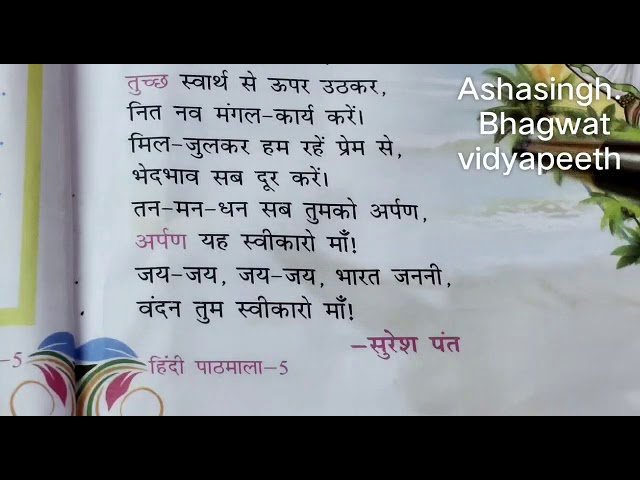 तुच्छ स्वार्थ से ऊपर उठकर,
नित नव मंगल-कार्य करें।
मिल-जुलकर हम रहें प्रेम से,
भेदभाव सब दूर करें।
तन-मन-धन सब तुमको अर्पण,
अर्पण यह स्वीकारो माँ!
जय-जय, जय-जय, भारत जननी,
वंदन तुम स्वीकारो माँ!
-सुरेश पंत
-5
हिंदी पाठमाला-5
Ashasingh.
Bhagwat
vidyapeeth